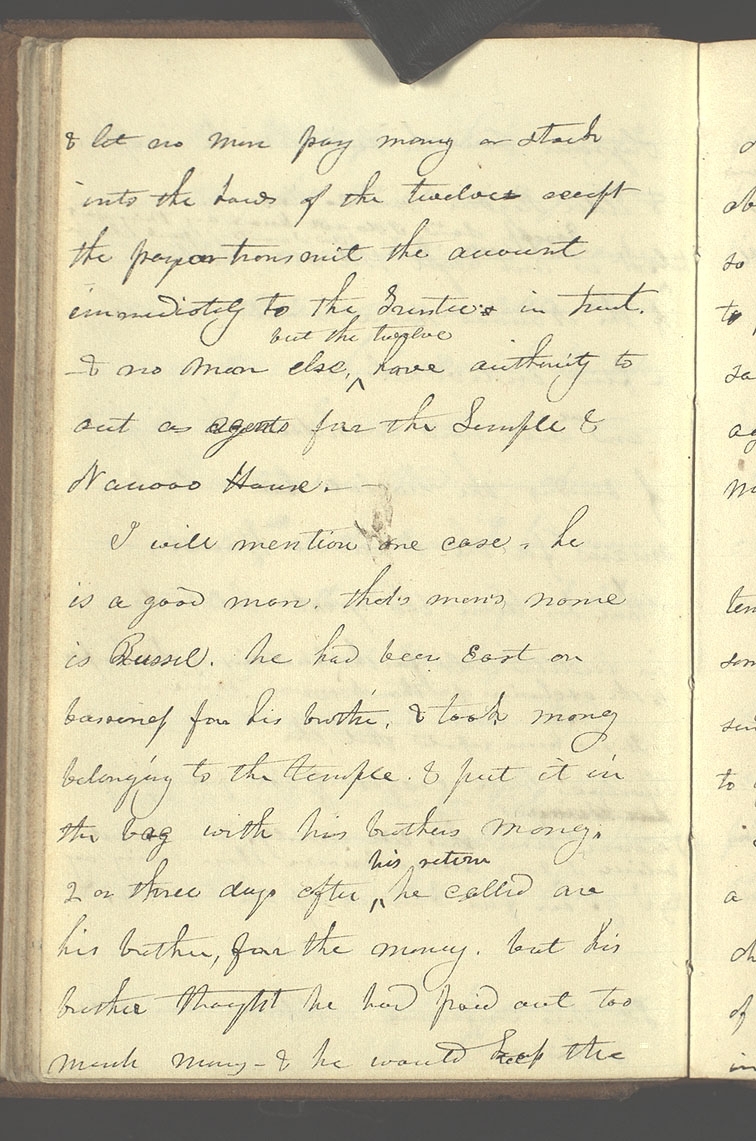 & let no man pay money or stock
into the hands of the twelve except
the payer transmit the account
immediately to the Trustee in trust.
but the twelve
- & no man else, have authority to
act as agents for the Temple &
Nauvoo House. —
I will mention one case, he
is a good man. that's man's name
is Russel. he had been East on
business for his brother, & took money
belonging to the temple. & put it in
the bag with his brothers money.
his return
2 or three days after he called on
his brother, for the money. but his
brother thought he had paid out too
much money - & he would keep the